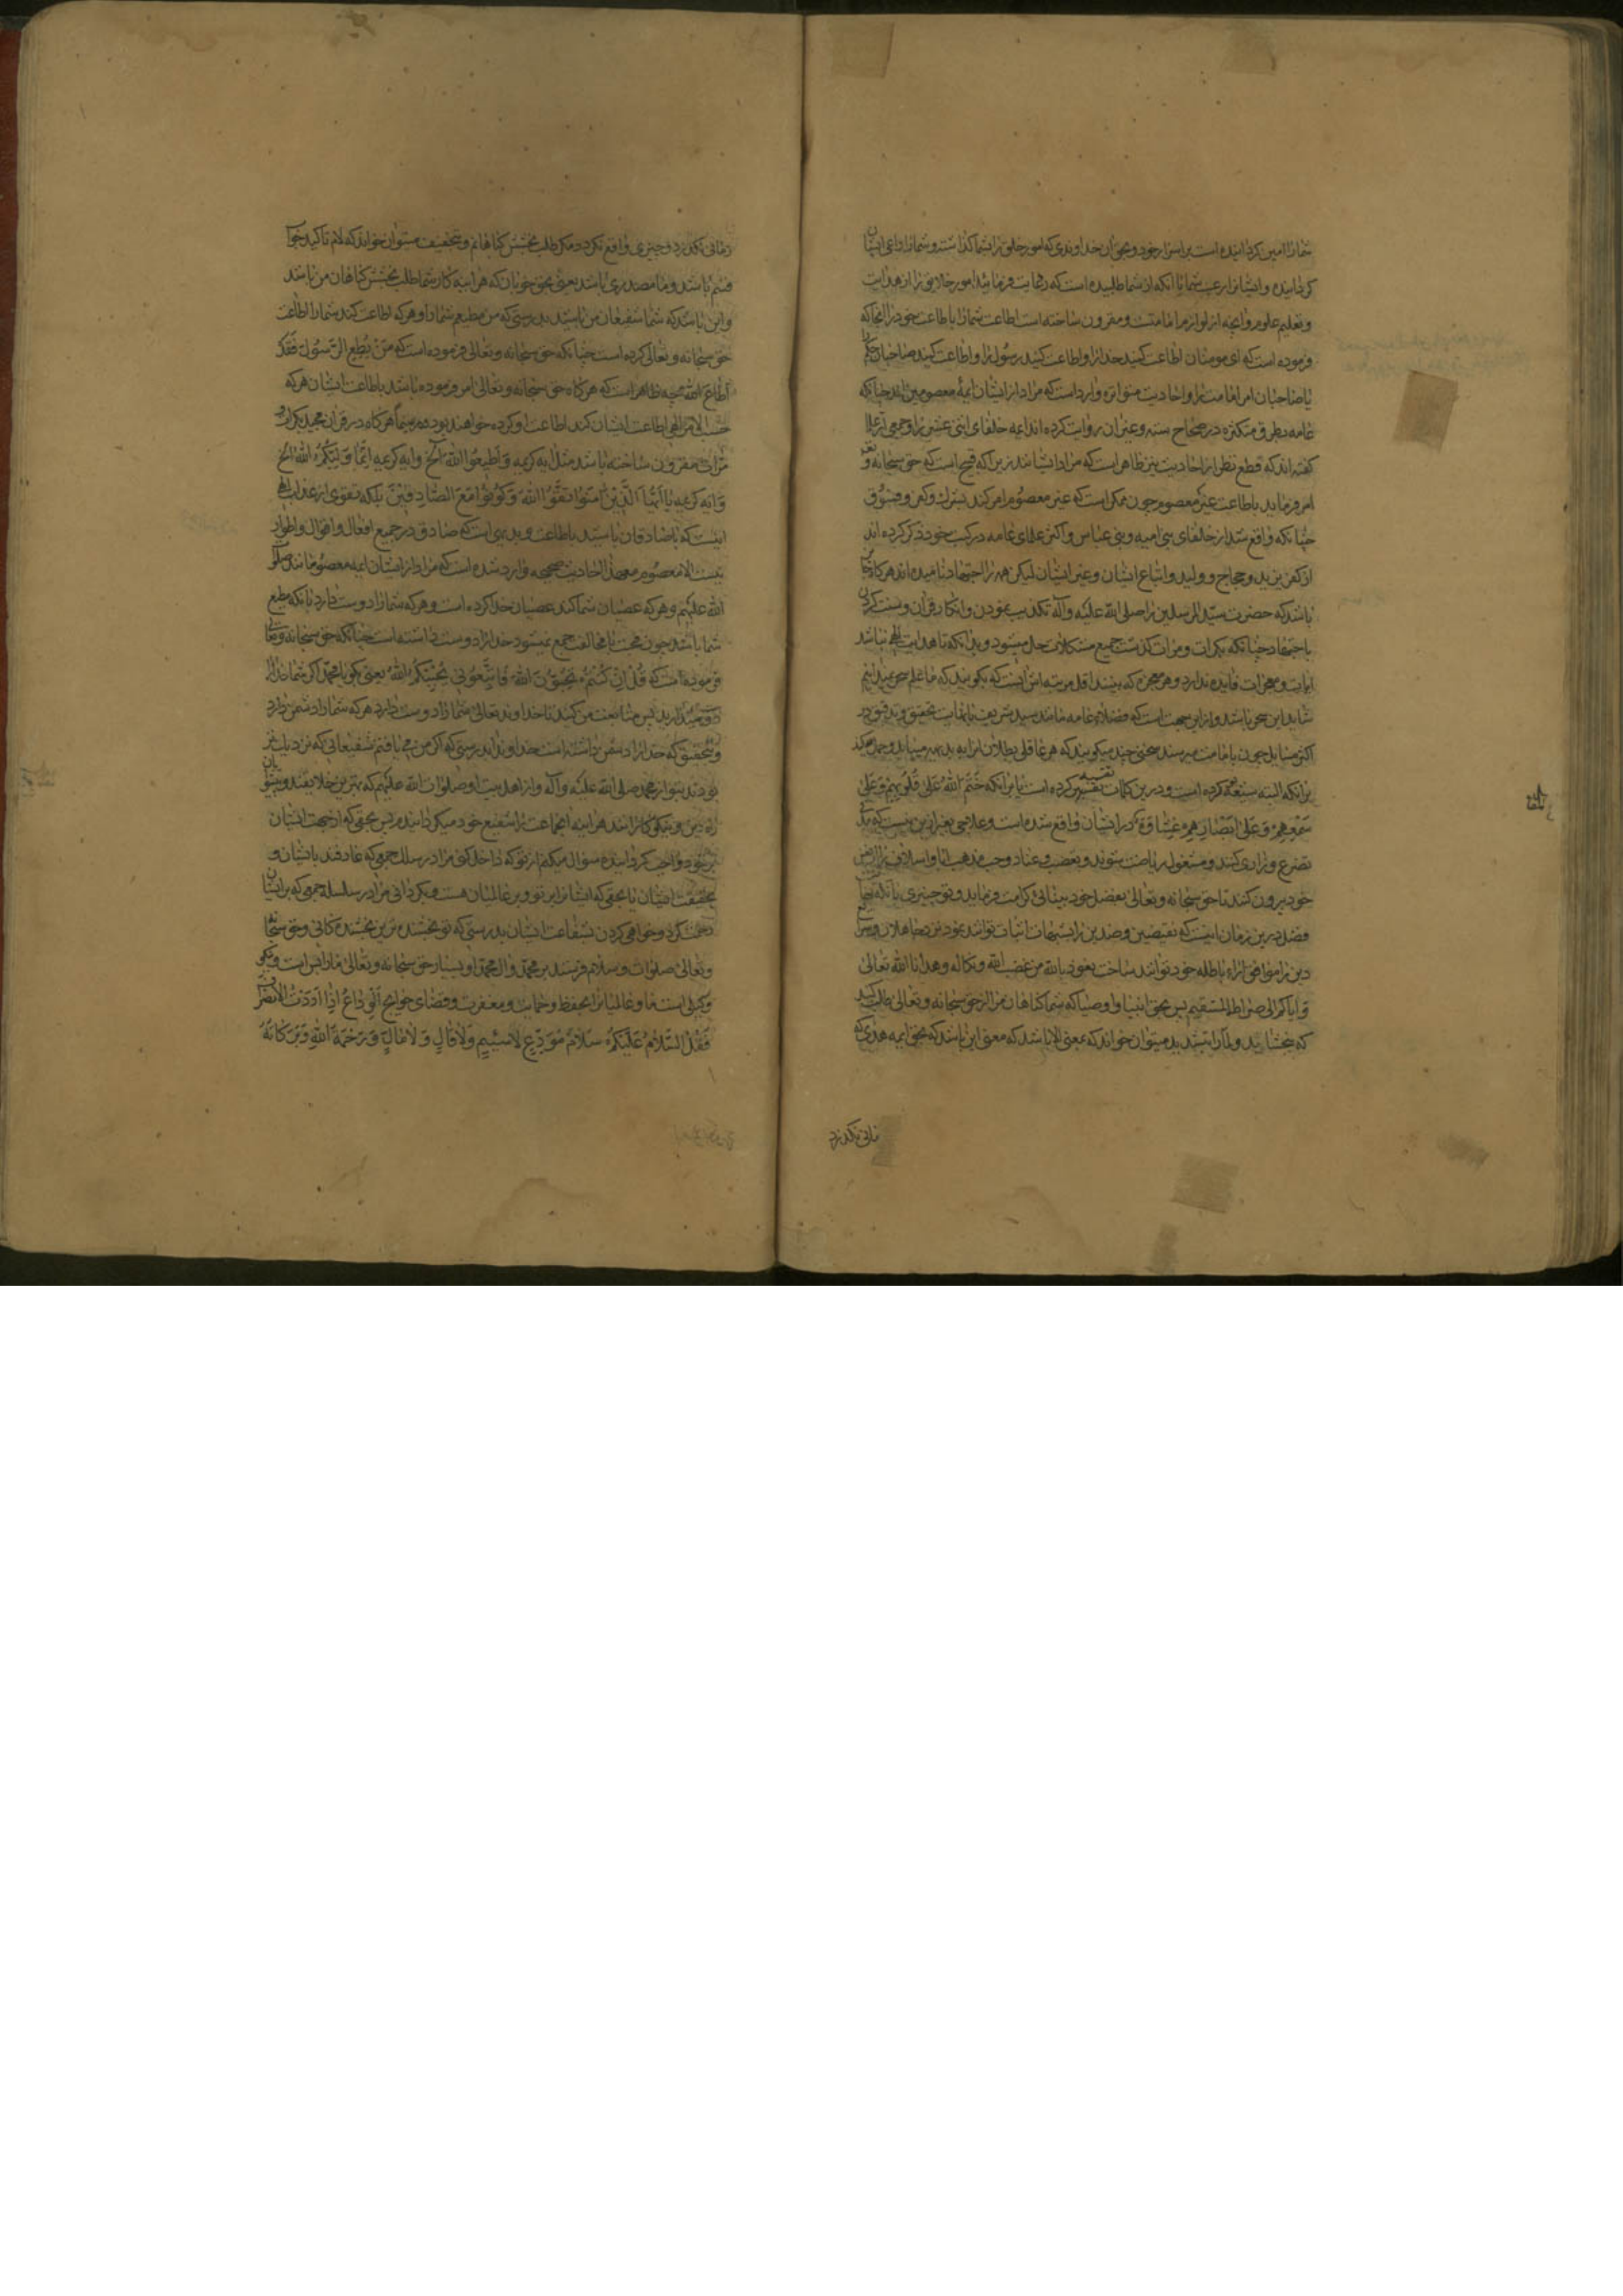 شما را امین گردانیده است بر اسرار خود و بحق آن خداوندی که امور خلایق را بشما گذاشته و شما را داعی ایشان
گردانیده و ایشانرا رعیت شما یا آنکه از شما طلبیده است که رعایت فرمائید امور خلایق را از هدایت
و تعلیم علوم و آنچه از لوازم امامتست و مقرون ساخته است اطاعت شما را باطاعت خود در آنجا که
فرموده است که ای مومنان اطاعت کنید خدا را و اطاعت کنید رسول را و اطاعت کنید صاحبان حکم
یا صاحبان امر امامت را و احادیث متواتره وارد است که مراد از ایشان ایمهٔ معصومین‌اند چنانکه
عامه بطرق متکثره در صحاح سته و غیر آن روایت کرده‌اند ایمه خلفای اثنی عشر را و جمعی از علما
گفته‌اند که قطع نظر از احادیث نیز ظاهر است که مراد ایشانند زیرا که قبیح است که حق سبحانه و تعالی
امر فرماید باطاعت غیر معصوم چون ممکن است که غیر معصوم امر کند بشرک و کفر و فسوق
چنانکه واقع شد از خلفای بنی امیه و بنی عباس و اکثر علمای عامه در کتب خود ذکر کرده‌اند
از کفر یزید و حجاج و ولید و اتباع ایشان و غیر ایشان لیکن همه را اجتهاد نامیده‌اند هرگاه
باشد که حضرت سید المرسلین را صلی الله علیه و آله تکذیب نمودن و انکار قرآن و سنت کردن
باجتهاد چنانکه بکرات و مرات گذشت جمیع مشکلات حل میشود و بدانکه تا هدایت الهی نباشد
آیات و معجزات فایده ندارد و هر معجزی که بینند اقل مرتبه‌اش اینست که بگویند که ما علم سحر نمیدانیم
شاید این سحر باشد و از این جهت است که فضلاء عامه مانند سید شریف با نهایت تحقیق و تدقیق در
اکثر مسایل چون بامامت میرسند سخنی چند میگویند که هر عاقلی بطلان آنرا به بدیهه مییابد و حمل میکند
بر آنکه البته تقیه کرده است و درین کلمات تقیه کرده است یا بر آنکه ختم الله علی قلوبهم و علی
سمعهم و علی ابصارهم غشاوة در ایشان واقع شده است و علاجی بغیر ازین نیست که
تضرع و زاری کنند و مشغول ریاضت شوند و تعصب و عناد و حب مذهب آبا و اسلاف را از نفس
خود بیرون کنند تا حق سبحانه و تعالی بفضل خود بینائی کرامت فرماید
فضل درین زمان اینست که نقیضین و ضدین را بشبهات اثبات توانند نمود نزد جاهلان
دین را موافق آراء باطله خود توانند ساخت نعوذ بالله من غضب الله و نکاله و هدانا الله تعالی
و ایاکم الی صراط المستقیم پس بحق انبیا و اوصیا که شما گناهان مرا از حق سبحانه و تعالی طلب کنید
که بخشاید و لما را بتشدید میتوان خواند که بمعنی الا باشد که معنی این باشد که بحق ایمه هدی که
زمانی نگذرد
زمانی نگذرد و چیزی واقع نگردد مگر طلب بخشش گناهانم و بتخفیف میتوان خواند که لام تاکید جواب
قسم باشد و ما مصدری باشد یعنی بحق خوبان که هر آینه کار شما طلب بخشش گناهان من باشد
و این باشد که شما شفیعان من باشید بدرستی که من مطیعم شما را و هر که اطاعت کند شما را اطاعت
حق سبحانه و تعالی کرده است چنانکه حق سبحانه و تعالی فرموده است که من یطع الرسول فقد
اطاع الله چه ظاهر است که هرگاه حق سبحانه و تعالی امر فرموده باشد باطاعت ایشان هر که
حسب الامر الهی اطاعت ایشان کند اطاعت او کرده خواهد بود سیما هرگاه در قرآن مجید بکرات و
مرات مقرون ساخته باشد مثل آیه کریمه و اطیعوا الله الخ و آیه کریمه انما ولیکم الله الخ
و آیه کریمه یا ایها الذین آمنوا اتقوا الله و کونوا مع الصادقین بلکه تقوی از عذاب الهی
اینست که با صادقان باشید باطاعت و بدیهی است که صادق در جمیع افعال و اقوال و اطوار
نیست الا معصوم مع هذا احادیث صحیحه وارد شده است که مراد از ایشان ایمه معصومانند صلوات
الله علیهم و هر که عصیان شما کند عصیان خدا کرده است و هر که شما را دوست دارد بآنکه مطیع
شما باشد چون محبت با مخالفت جمع نمیشود خدا را دوست داشته است چنانکه حق سبحانه و تعالی
فرموده است که قل ان کنتم تحبون الله فاتبعونی یحببکم الله یعنی بگو یا محمد اگر شما خدا را
دوست میدارید پس متابعت من کنید تا خداوند تعالی شما را دوست دارد و هر که شما را دشمن دارد
و بتحقیق که خدا را دشمن داشته است خداوندا بدرستی که اگر من می یافتم شفیعانی که نزدیک‌تر
بودند بتو از محمد صلی الله علیه و آله و از اهل بیت او صلوات الله علیهم که بهترین خلایقند و پیشوایان
راه دین و نیکوکارانند هر آینه آنجماعت را شفیع خود میگردانیدم پس بحقی که از جهت ایشان
بر خود واجب گردانیده سؤال میکنم از تو که داخل کنی مرا در سلک جمعی که عارفند بایشان و
بحقیقت ایشان یا بحقی که ایشانرا بر تو و بر عالمیان هست و بگردانی مرا در سلسله جمعی که بر ایشان
رحمت کرده و خواهی کردن بشفاعت ایشان بدرستی که تو بخشنده ترین بخشنده‌گانی و حق سبحانه
و تعالی صلوات و سلام فرستد بر محمد و آل محمد او بسیار حق سبحانه و تعالی ما را بس است و نیکو
وکیلی است ما و عالمیانرا بحفظ و حمایت و مغفرت و قضای حوایج الوداع اذا اردت الانصراف
فقل السلام علیکم سلام مودع لا سئم و لا قال و لا مال و رحمة الله و برکاته